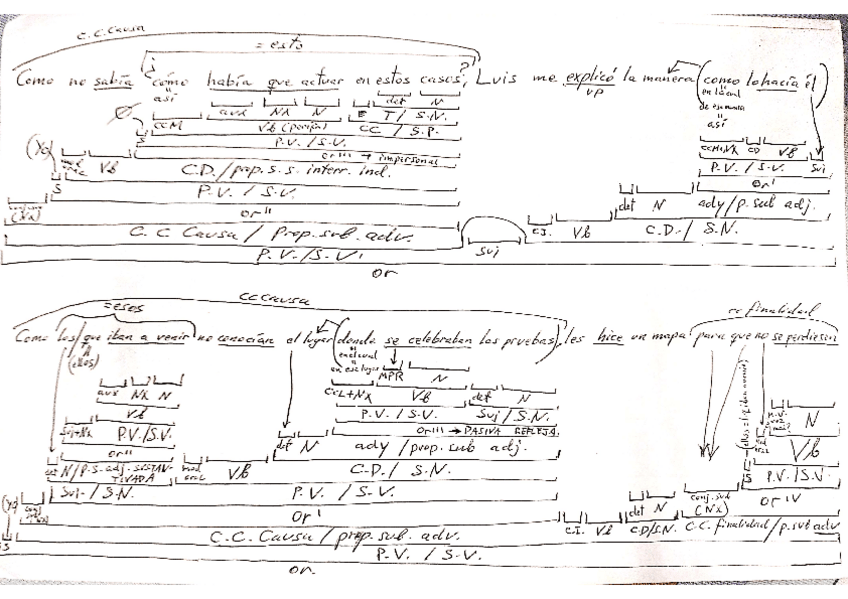 C.C. Causa
= esto
Como no sabía ¿cómo había que actuar en estos casos?, Luis me explicó la manera (como lo hacía él)
así det N VP en la cual
Ø CCM aux NX N E T/S.N. de esa manera
S Vb (perífr) CC / S.P. así
P.V. / S.V. CD Vb
(Yo) or''' → impersonal P.V. / S.V. Suj
Vb C.D./prop. s. s. interr. ind. or'
S P.V. / S.V. det N ady/p. sub adj.
(NX) or'' C.I. Vb C.D./ S.N.
C.C. Causa / Prop. sub. adv. Suj
P.V. / S.V.
or
CC Causa
= esos cc finalidad
Como los (que iban a venir) no conocían el lugar (donde se celebraban las pruebas), les hice un mapa para que no se perdiesen
(ellos) en el cual
en ese lugar MPR N
aux NX N CCL+NX Vb det N
Vb P.V. / S.V. Suj / S.N.
Suj+NX P.V./S.V. or''' → PASIVA REFLEJA N
or'' det N ady /prop. sub adj. Vb
det N/P.S. adj. SUSTAN- Vb C.D. / S.N. S P.V. / S.V.
TIVADA
(Yo) Suj. / S.N. P.V. / S.V. det N conj. sub or IV
or' C.I. Vb C.D/S.N. (NX)
C.C. Causa / prop. sub. adv. C.C. finalidad / p. sub adv
S P.V. / S.V.
or.